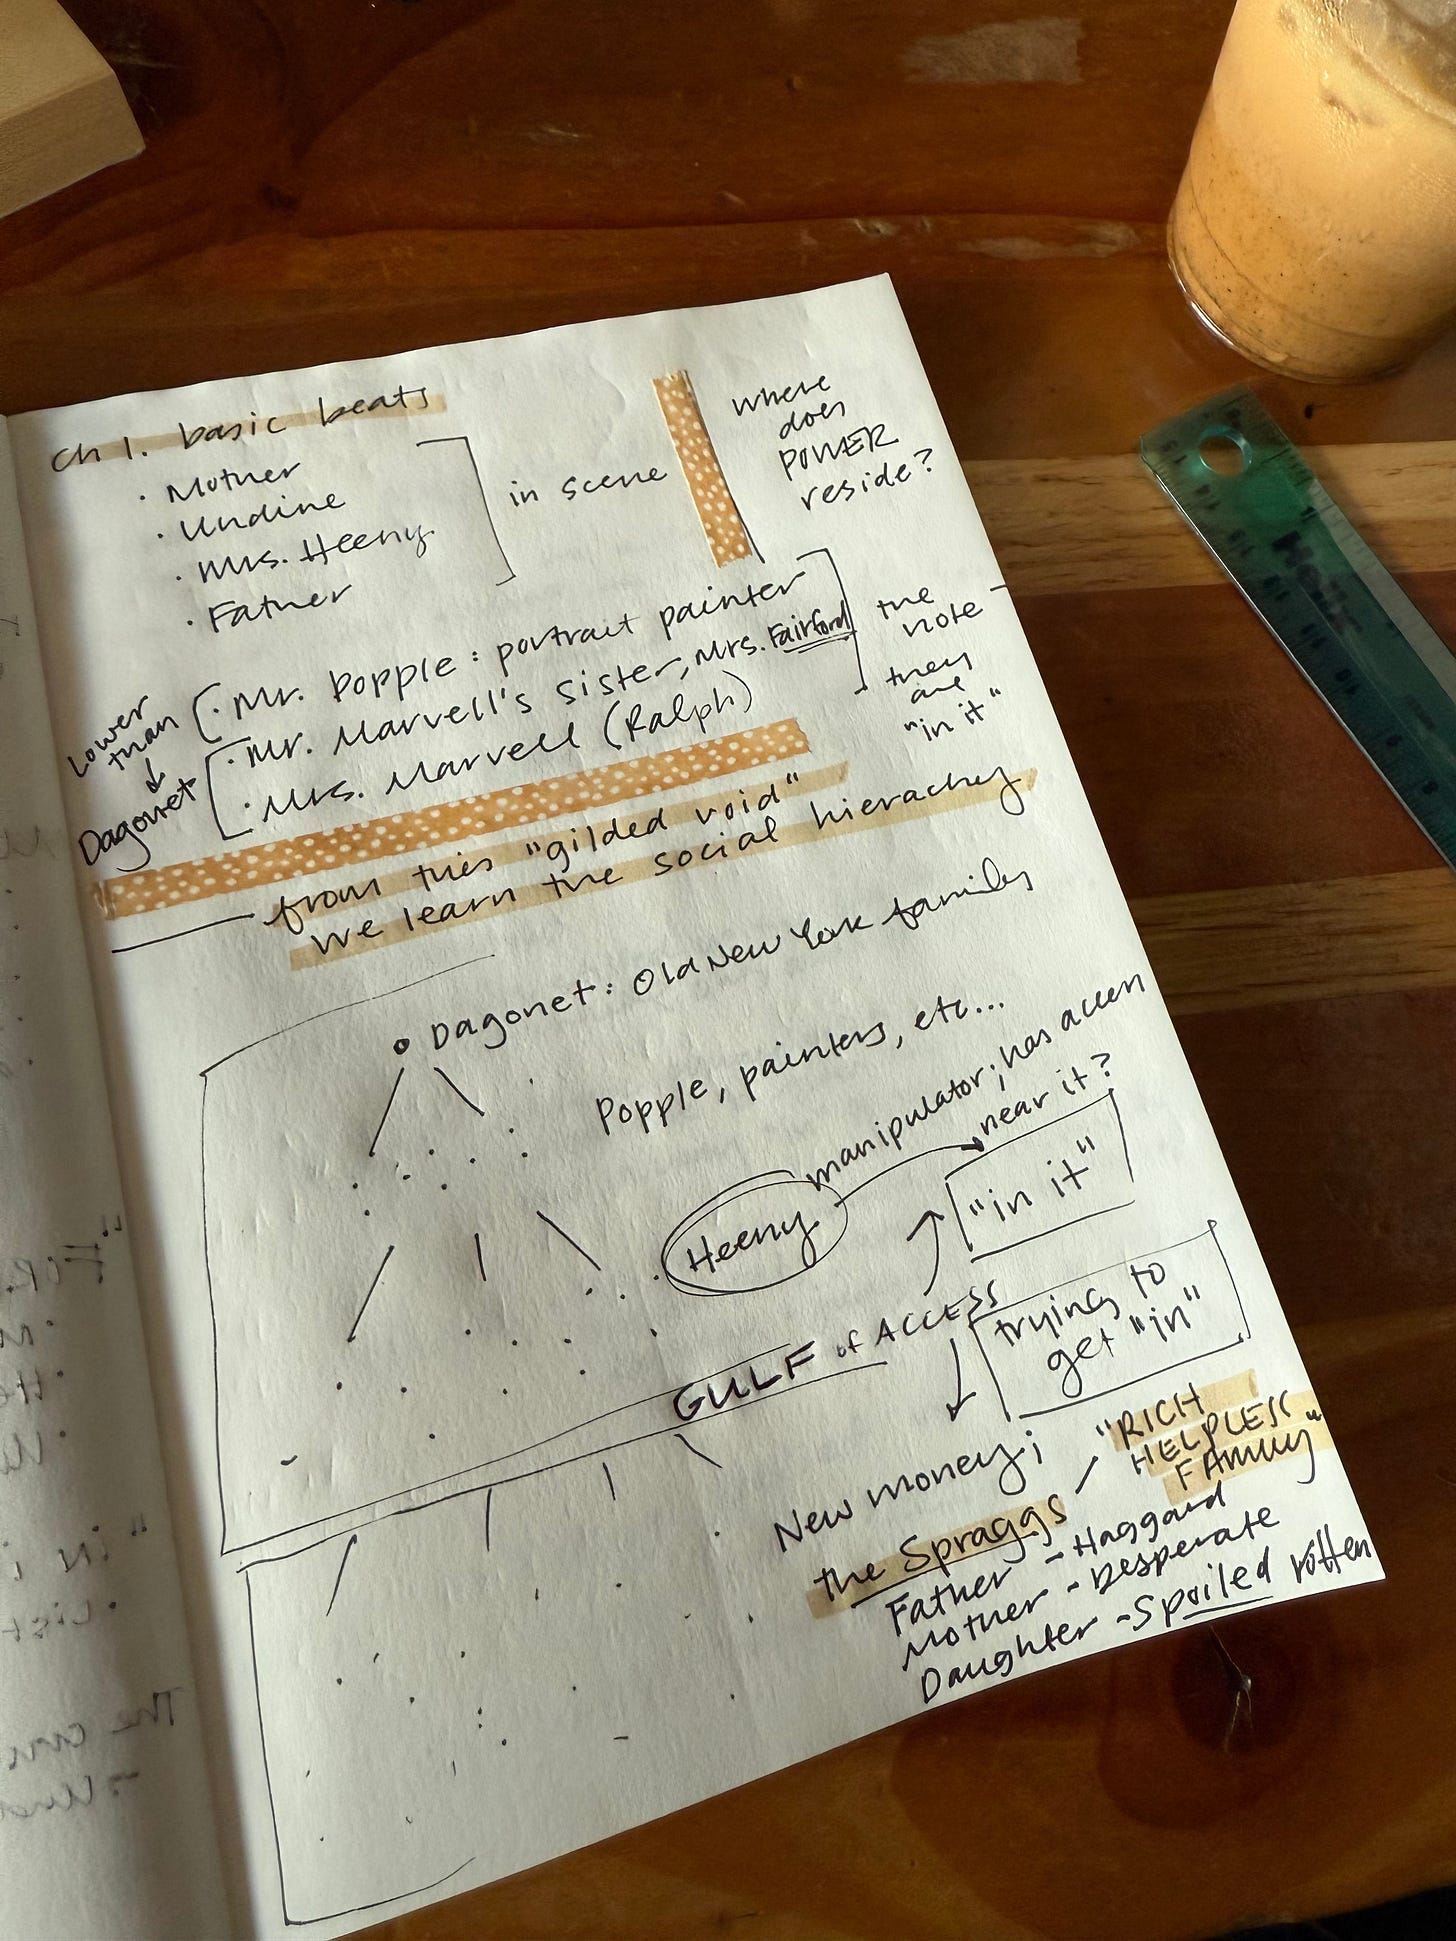 ch 1. basic beats
· Mother
· Undine
· Mrs. Heeny
· Father
in scene
where
does
POWER
reside?
· Mr. Popple: portrait painter
· Mr. Marvell's sister, Mrs. Fairford
· Mrs. Marvell (Ralph)
Lower
than
↓
Dagonet
the
note –
they
are
"in it"
from this "gilded void"
we learn the social hierachey
Dagonet: Old New York family
Popple, painters, etc...
manipulator; has access
near it?
Heeny
"in it"
GULF of ACCESS
trying to
get "in"
New money;
the Spraggs
"RICH
HELPLESS
FAMILY"
Father - Haggard
Mother - Desperate
Daughter - Spoiled rotten